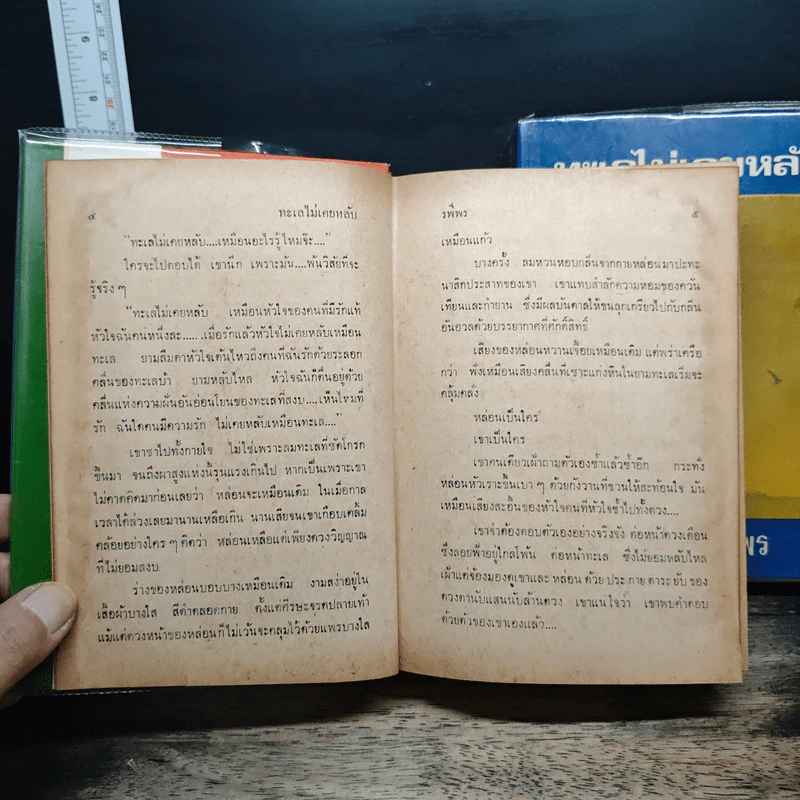 ๔ ทะเลไม่เคยหลับ
"ทะเลไม่เคยหลับ....เหมือนอะไรรู้ไหมจ๊ะ...."
ใครจะไปตอบได้ เขานึก เพราะมัน....พ้นวิสัยที่จะ
รู้จริง ๆ
"ทะเลไม่เคยหลับ เหมือนหัวใจของคนที่มีรักแท้
หัวใจฉันคนหนึ่งละ......เมื่อรักแล้วหัวใจไม่เคยหลับเหมือน
ทะเล ยามลืมตาหัวใจเต้นไหวถึงคนที่ฉันรักด้วยระลอก
คลื่นของทะเลบ้า ยามหลับไหล หัวใจฉันก็ตื่นอยู่ด้วย
คลื่นแห่งความฝันอันอ่อนโยนของทะเลที่สงบ....เห็นไหมที่
รัก ฉันใดคนมีความรัก ไม่เคยหลับเหมือนทะเล...."
เขาชาไปทั้งกายใจ ไม่ใช่เพราะลมทะเลที่ซัดโกรก
ขึ้นมา จนถึงผาสูงแห่งนี้รุนแรงเกินไป หากเป็นเพราะเขา
ไม่คาดคิดมาก่อนเลยว่า หล่อนจะเหมือนเดิม ในเมื่อกาล
เวลาได้ล่วงเลยมานานเหลือเกิน นานเสียจนเขาเกือบเคลิ้ม
คล้อยอย่างใคร ๆ คิดว่า หล่อนเหลือแต่เพียงดวงวิญญาณ
ที่ไม่ยอมสงบ
ร่างของหล่อนบอบบางเหมือนเดิม งามสง่าอยู่ใน
เสื้อผ้าบางใส สีดำตลอดกาย ตั้งแต่ศีรษะจรดปลายเท้า
แม้แต่ดวงหน้าของหล่อนก็ไม่เว้นจะคลุมไว้ด้วยแพรบางใส
รพีพร ๕
เหมือนแก้ว
บางครั้ง ลมหวนหอบกลิ่นจากกายหล่อนมาปะทะ
นาสิกประสาทของเขา เขาแทบสำลักความหอมของควัน
เทียนและกำยาน ซึ่งมีผลบันดาลให้ขนลุกเกรียวไปกับกลิ่น
อันอวลด้วยบรรยากาศที่ศักดิ์สิทธิ์
เสียงของหล่อนหวานเจื้อยเหมือนเดิม แต่พร่าเครือ
กว่า ฟังเหมือนเสียงคลื่นที่เซาะแก่งหินในยามทะเลเริ่มจะ
คลุ้มคลั่ง
หล่อนเป็นใคร
เขาเป็นใคร
เขาคนเดียวเฝ้าถามตัวเองซ้ำแล้วซ้ำอีก กระทั่ง
หล่อนหัวเราะขึ้นเบา ๆ ด้วยกังวานที่ชวนให้สะท้อนใจ มัน
เหมือนเสียงสะอื้นของหัวใจคนที่หัวใจช้ำไปทั้งดวง....
เขาจำต้องตอบตัวเองอย่างจริงจัง ต่อหน้าดวงเดือน
ซึ่งลอยฟ้าอยู่ไกลโพ้น ต่อหน้าทะเล ซึ่งไม่ยอมหลับไหล
เฝ้าแต่จ้องมองดูเขาและ หล่อน ด้วย ประกาย ดาระยับ ของ
ดวงตานับแสนนับล้านดวง เขาแน่ใจว่า เขาพบคำตอบ
ด้วยตัวของเขาเองแล้ว....
ทะเลไม่เคยหลั
พร
9
8